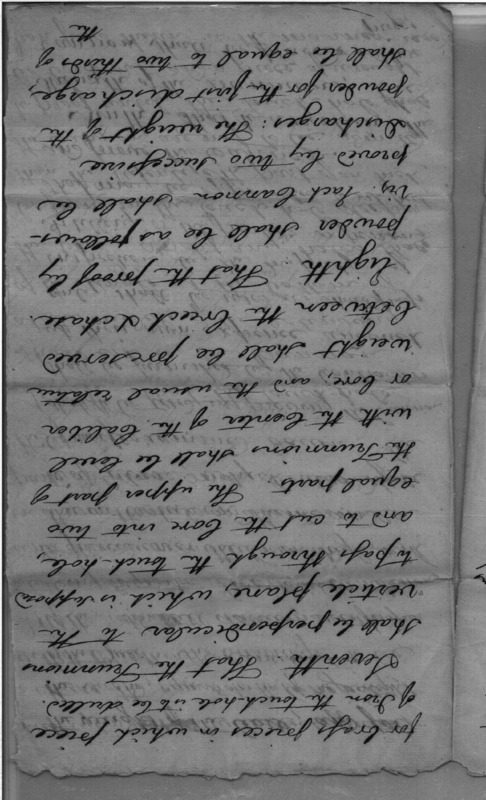 for brass pieces in which piece
of Iron the touchhole is to be drilled.
Seventh. That the Trunnions
shall be perpendicular to the
verticle plane, which is suppos'd
to pass through the touch-hole,
and to cut the bore into two
equal parts The upper part of
the Trunnions shall be level
with the Center of the Caliber
or bore, and the usual relative
weight shall be preserved
between the breech & chase.
Eighth. That the proof by
powder shall be as follows-
viz. Each Cannon shall be
proved by two successive
discharges: The weight of the
powder for the first discharge,
shall be equal to two thirds of
the